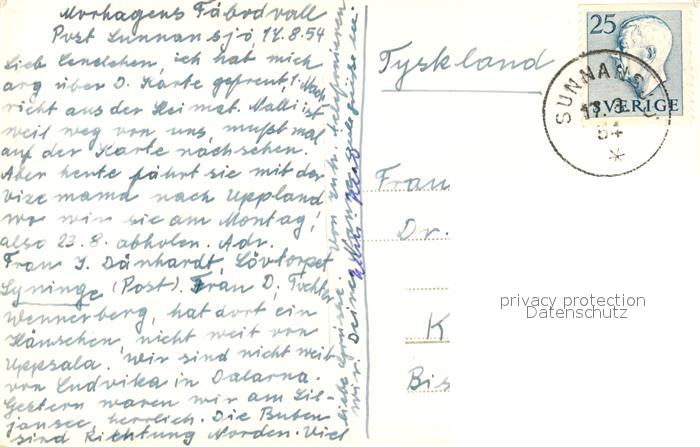 Morhagens Fäbodvall
Post Sunnansjö, 17.8.54
Lieb Lenelchen, ich hat mich
arg über D. Karte gefreut, 1. Nach
richt aus der Heimat. Malli ist
weit weg von uns, mußt mal
auf der Karte nachsehen.
Aber heute fährt sie mit der
vizemama nach Uppland
wo wir sie am Montag,
also 23.8. abholen. Adr.
Frau J. Dänhardt, Lövtorpet
Lyninge (Post). Frau D., Tochter
Wennerberg, hat dort ein
Häuschen, nicht weit von
Uppsala. Wir sind nicht weit
von Ludvika in Dalarna.
Gestern waren wir am Sil-
jansee, herrlich. Die Buben
sind Richtung Norden. Viel
liebe Grüße von
wir Deine
Tyskland
Frau
Dr.
K
Bis
25
SVERIGE
SUNNANSJÖ
17.8
54
privacy protection
Datenschutz